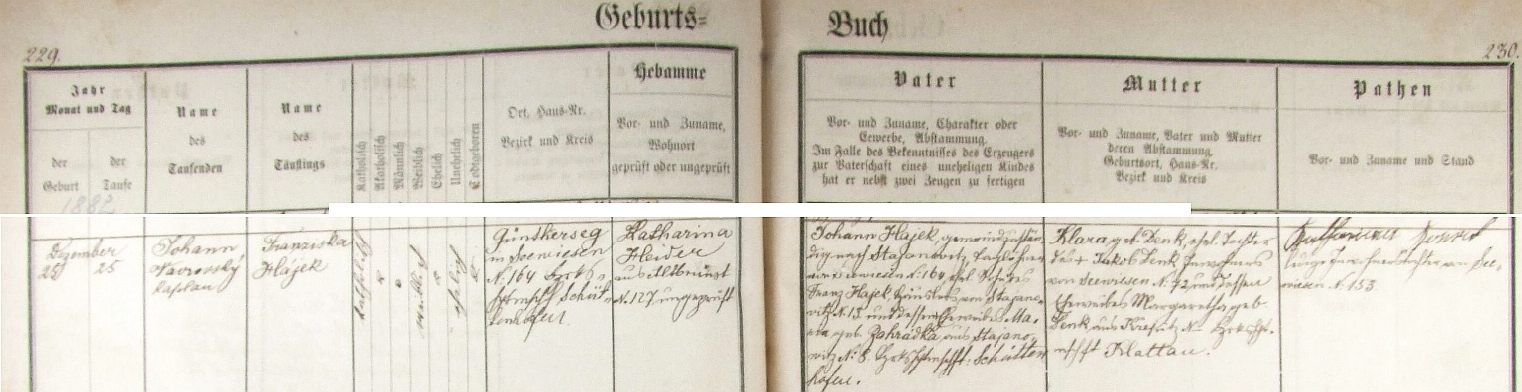 Geburts= Buch
229.
230.
Jahr
Monat und Tag
der
Geburt
der
Taufe
1882
Name
des
Taufenden
Name
des
Täuflings
Katholisch
Akatholisch
Männlich
Weiblich
Ehelich
Unehelich
Todtgeboren
Ort, Haus-Nr.
Bezirk und Kreis
Hebamme
Vor- und Zuname,
Wohnort
geprüft oder ungeprüft
Vater
Vor- und Zuname, Charakter oder
Gewerbe, Abstammung.
Im Falle des Bekenntnisses des Erzeugers
zur Vaterschaft eines unehelichen Kindes
hat er nebst zwei Zeugen zu fertigen
Mutter
Vor- und Zuname, Vater und Mutter
deren Abstammung
Geburtsort, Haus-Nr.
Bezirk und Kreis
Pathen
Vor- und Zuname und Stand
Dezember
25 25
Johann
Kaplan
Franziska
Hájek
katholisch
weiblich
ehelich
N. 164
Schüt-
tenhofen
Katharina
Heider
aus Altbrünst
N. 127 ungeprüft
Johann Hajek,
nach Stajanowitz, Taglöhner
N. 164, ehel. Sohn des
Franz Hajek, Häuslers von Stajano-
witz N. 15. und dessen Eheweibes Ma-
ria geb. Zahradka aus Stajano-
witz N. 8. Schütten-
hofen.
Klara, geb. Denk, ehel. Tochter
des + Jakob Denk Inwohners
von Seewiesen N. 42 und dessen
Eheweibes Margaretha geb.
Denk aus
Klattau.
von See-
wiesen N. 153